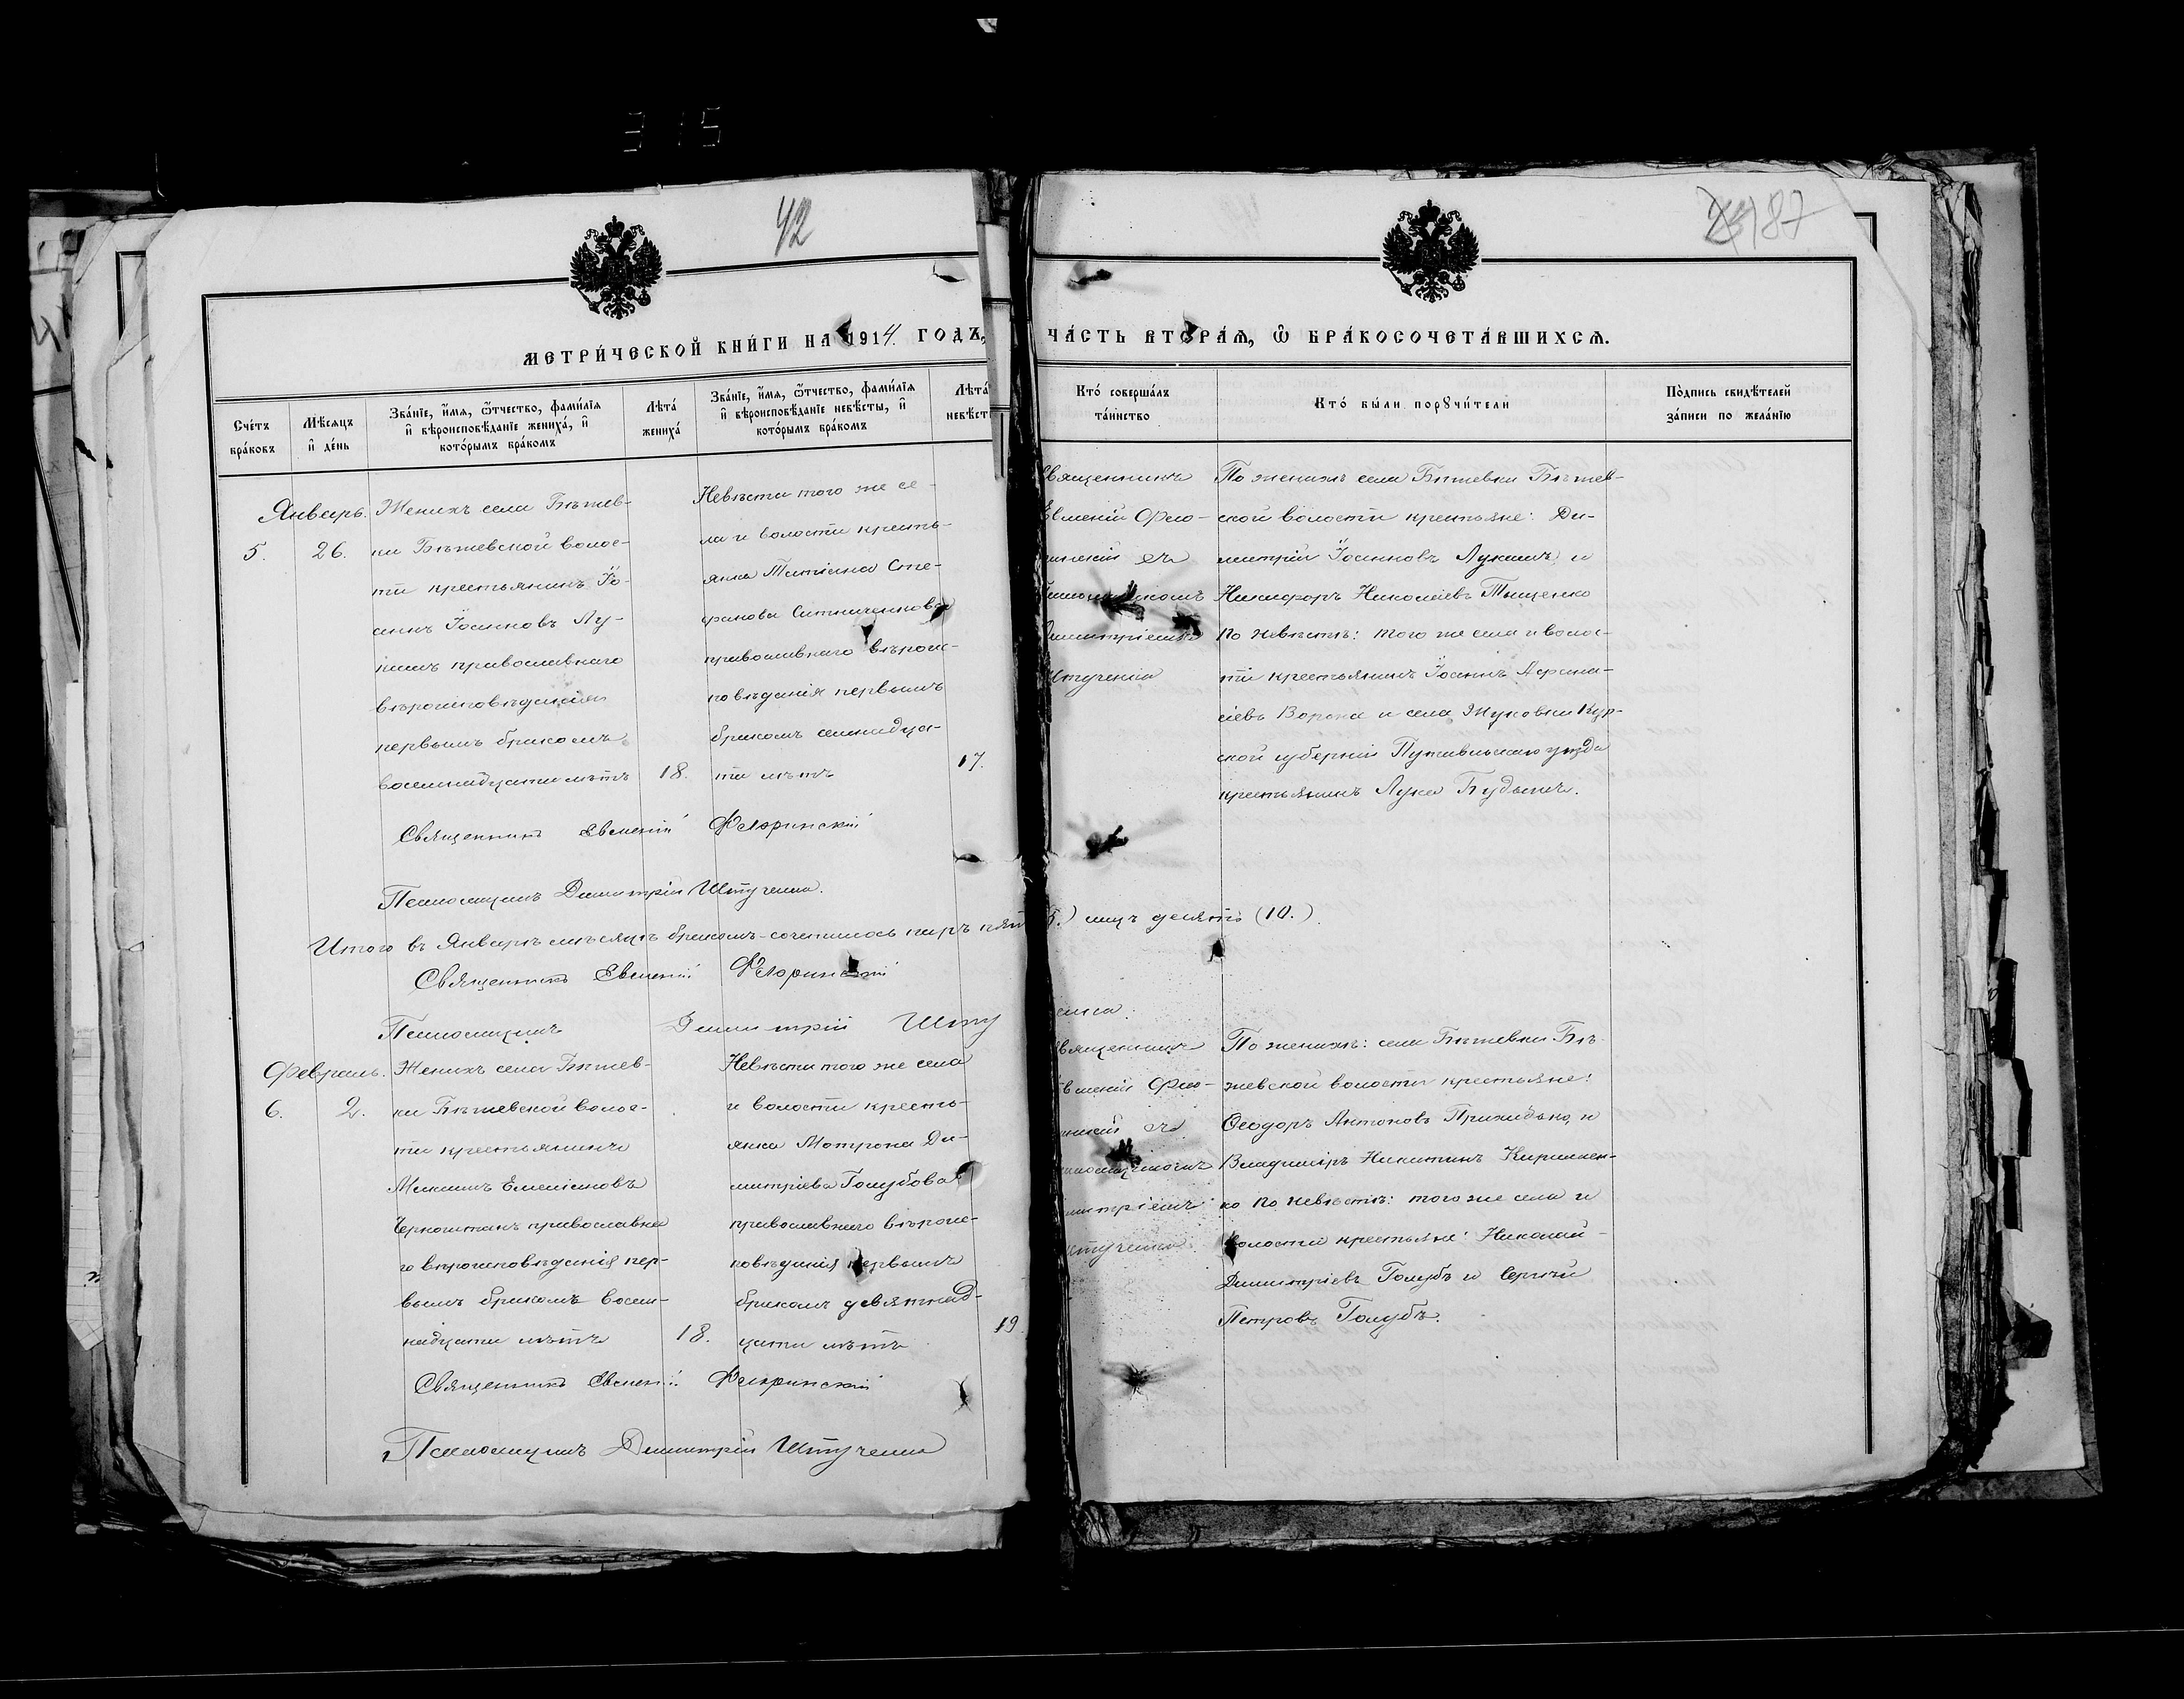 315
42
187
МЕТРИ́ЧЕСКОЙ КНИ́ГИ НА 1914. ГОДЪ,
ЧА́СТЬ ВТОРА́Я, Ѡ҆ БРАКОСОЧЕТА́ВШИХСЯ.
Сче́тъ бра́ковъ
Мѣ́сяцъ и҆ де́нь
Зва́нїе, и҆́мя, ѻ҆́тчество, фами́лїя и҆ вѣроисповѣ́данїе жениха́, и҆ кото́рымъ бра́комъ
Лѣ́та жениха́
Зва́нїе, и҆́мя, ѻ҆́тчество, фами́лїя и҆ вѣроисповѣ́данїе невѣ́сты, и҆ кото́рымъ бра́комъ
Лѣ́та невѣст
Кто́ соверша́лъ та́инство
Кто́ бы́ли порꙋчи́тели
По́дпись свидѣ́телей за́писи по жела́нїю
Январь.
5.
26.
Женихъ села Бѣжев-
ки Бѣжевской волос-
ти крестьянинъ Іо-
аннъ Іоанновъ Лу-
кашъ православнаго
вѣроисповѣданія
первымъ бракомъ
восемнадцати лѣтъ
18.
Невѣста того же се-
ла и волости кресть-
янка Татіана Сте-
фанова Ситниченкова
православнаго вѣроис-
повѣданія первымъ
бракомъ семнадца-
ти лѣтъ
17.
вященникъ
Евменій Фло-
ринскій съ
Димитріемъ
Штученко
По женихѣ села Бѣжевки Бѣжев-
ской волости крестьяне: Ди-
митрій Іоанновъ Лукашъ, и
Никифоръ Николаевъ Тищенко
по невѣстѣ: того же села и волос-
ти крестьянинъ Іоаннъ Афана-
сіевъ Ворона и села Жуковки Кур-
ской губерніи Путивльскаго уѣзда
крестьянинъ Лука Будынъ.
Священникъ Евменій Флоринскій
Псаломщикъ Димитрій Штученко.
Итого въ Январѣ мѣсяцѣ бракомъ-сочеталось паръ пят
5.) лицъ десять (10.).
Священникъ Евменій Флоринскій
Псаломщикъ Димитрій Шту
енко.
Февраль.
6.
2.
Женихъ села Бѣжев-
ки Бѣжевской волос-
ти крестьянинъ
Максимъ Емеліановъ
Черкошманъ православна
го вѣроисповѣданія пер-
вымъ бракомъ восем-
надцати лѣтъ
18.
Невѣста того же села
и волости кресть-
янка Мотрона Ди-
митріева Голубова
православнаго вѣроис-
повѣданія первымъ
бракомъ девятнад-
цати лѣтъ
19.
вященникъ
вменій Фло-
инскій съ
аломщикомъ
митріемъ
тученко.
По женихѣ: села Бѣжевки Бѣ-
жевской волости крестьяне:
Ѳеодоръ Антоновъ Прихидько, и
Владиміръ Никитинъ Кириллен-
ко по невѣстѣ: того же села и
волости крестьяне: Николай
Димитріевъ Голубъ и Сергій
Петровъ Голубъ.
Священникъ Евменій Флоринскій
Псаломщикъ Димитрій Штученко